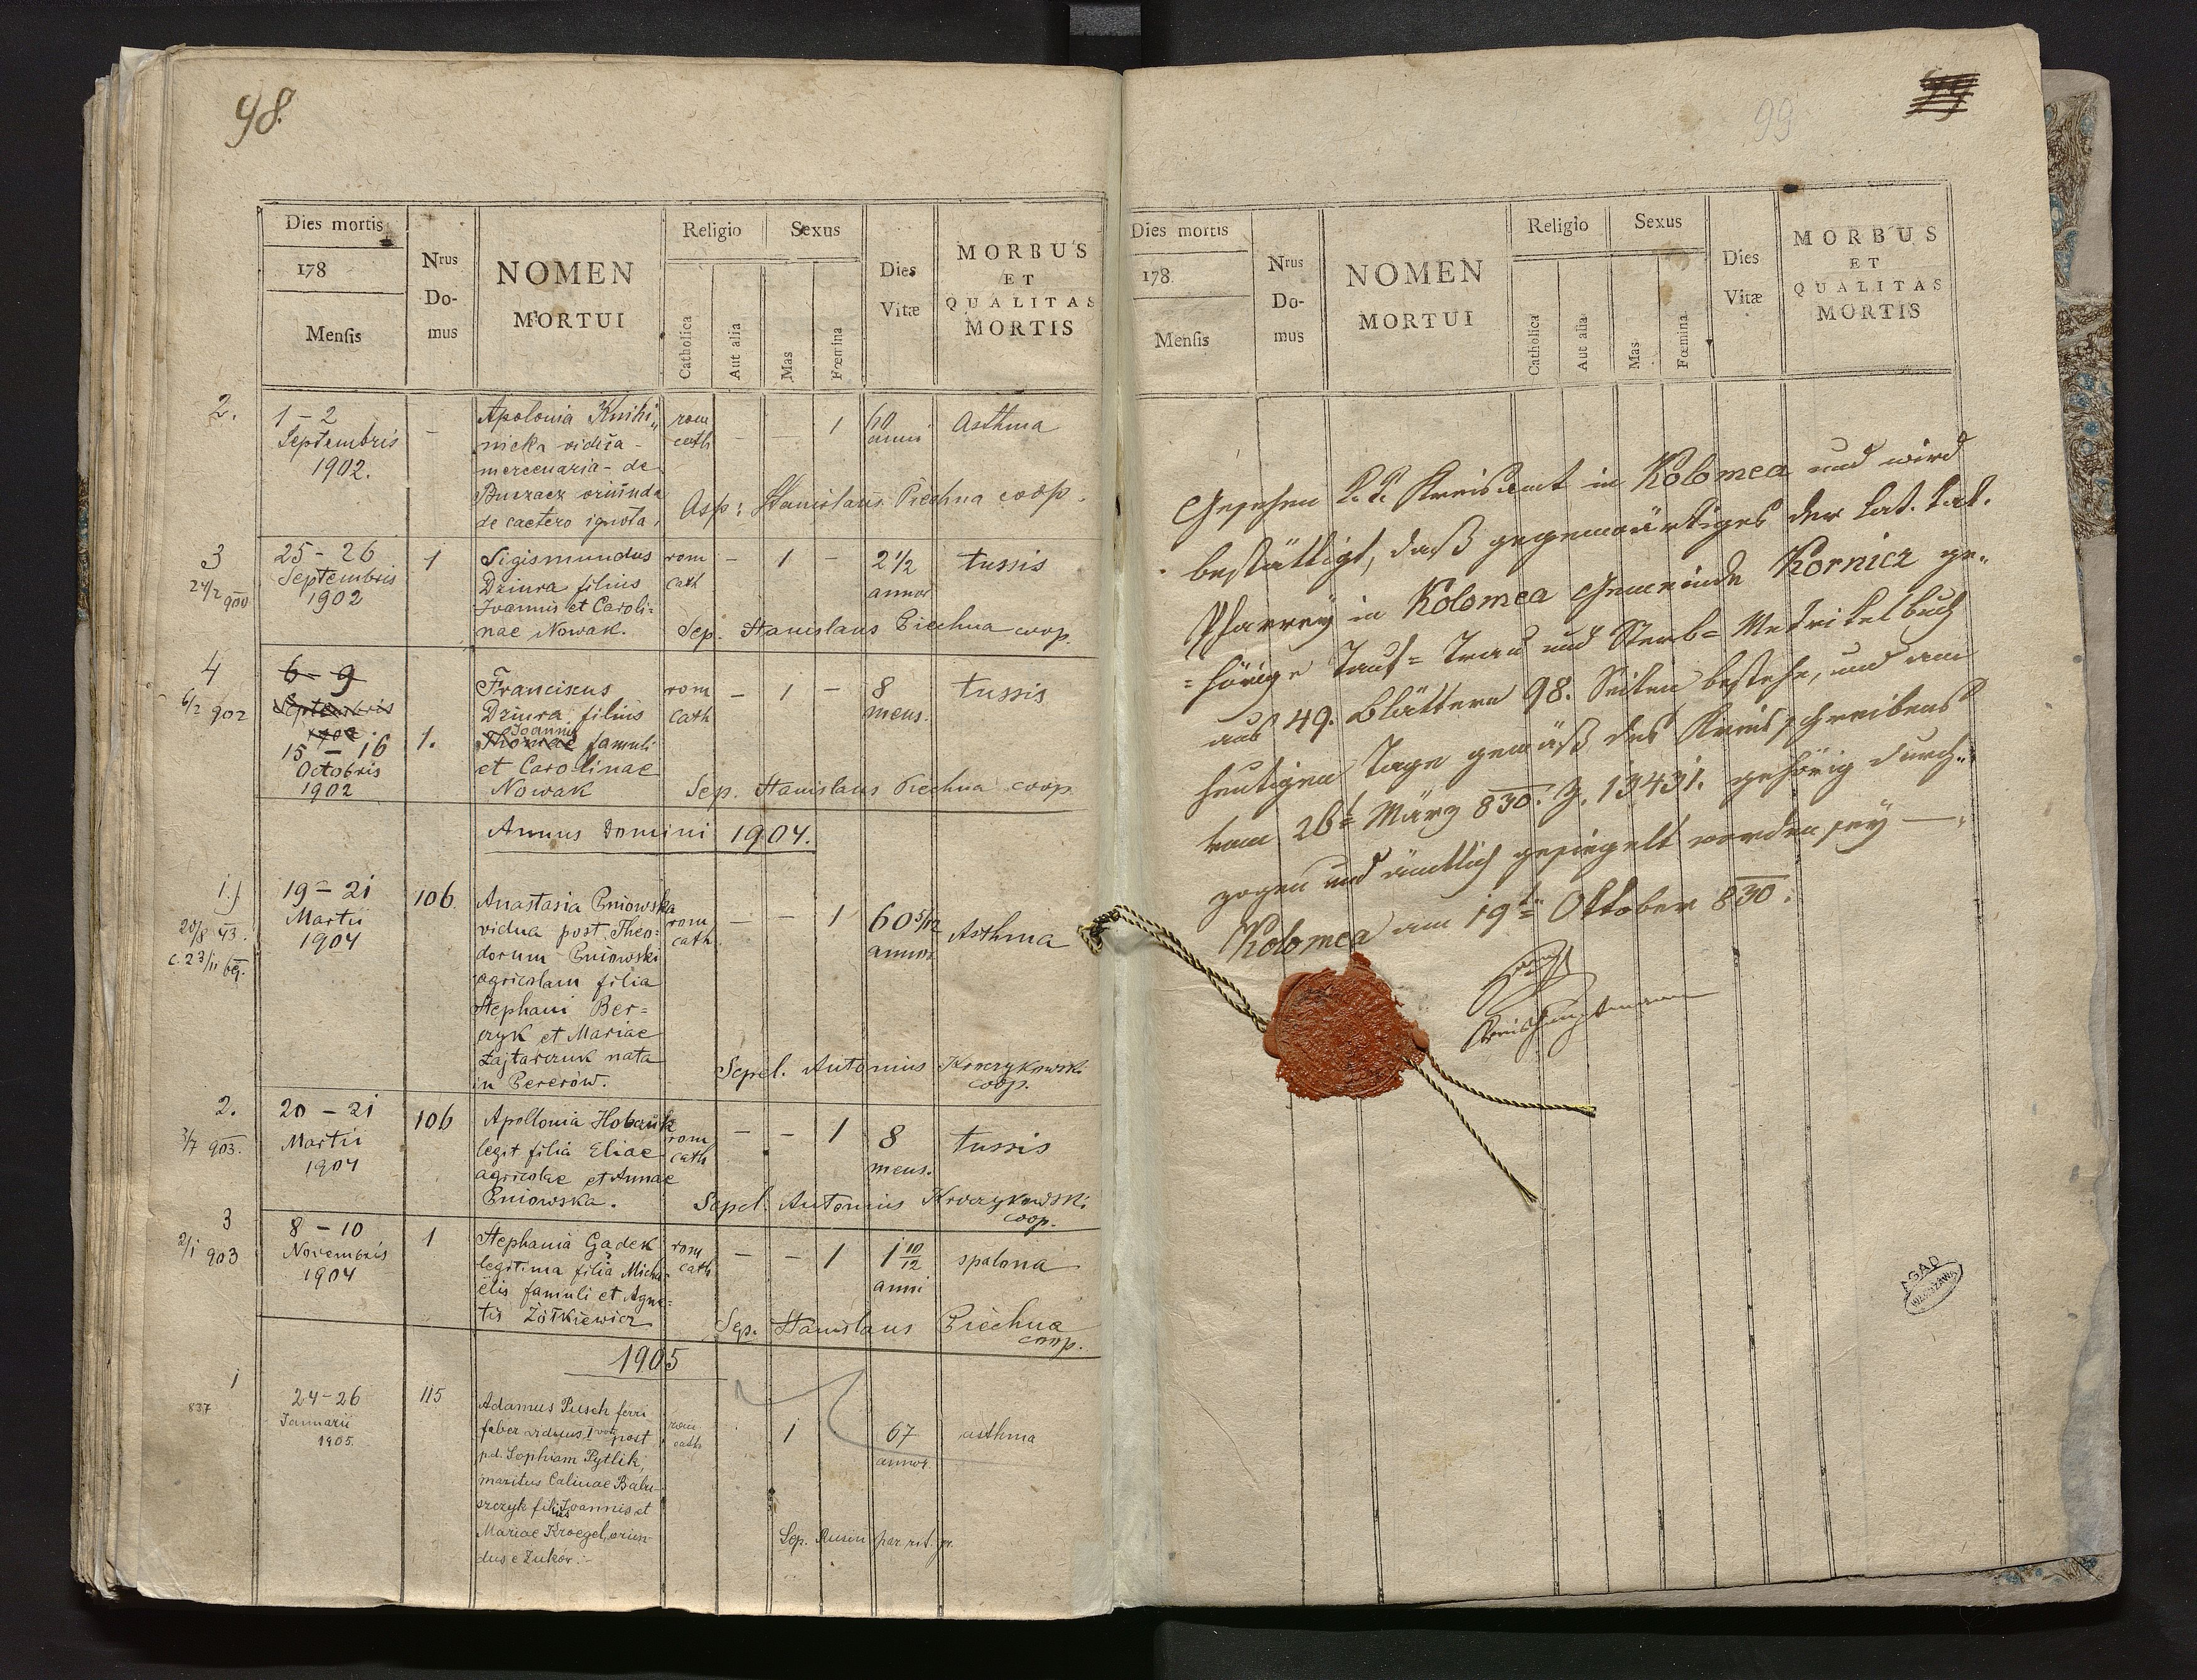 98.
Dies mortis
178
Mensis
Nrus
Do-
mus
NOMEN
MORTUI
Religio
Catholica
Aut alia
Sexus
Mas
Fœmina
Dies
Vitæ
MORBUS
ET
QUALITAS
MORTIS
2.
1 - 2
Septembris
1902.
-
Apolonia Knihi„
nicka vidua -
mercenaria - de
Buczacz oriunda
de caetero ignota.
rom
cath
- - 1
60
anni
Asthma
Asp: Stanislaus Piechna coop.
3
24/2 900
25 - 26
Septembris
1902
1
Sigismundus
Dziura filius
Joannis et Caroli=
nae Nowak.
rom
cath
- 1 -
2 1/2
annor
tussis
Sep. Stanislaus Piechna coop.
4
6/2 902
6 - 9
Septembris
1902
15 - 16
Octobris
1902
1.
Franciscus
Dziura filius
Joannis
Thomae famuli
et Carolinae
Nowak
rom
cath
- 1 -
8
mens.
tussis
Sep. Stanislaus Piechna coop.
Annus Domini 1904.
1.
20/8 43.
c. 23/11 69.
19 - 21
Martii
1904
106
Anastasia Pniowska
vidua post Theo=
dorum Pniowski
agricolam filia
Stephani Ber=
czyk et Mariae
Zajtarczuk nata
in Pererów.
rom
cath
- - 1
60 5/12
annor
Asthma
Sepel. Antonius Kroczykowski
coop.
2.
3/7 903.
20 - 21
Martii
1904
106
Apollonia Hobruk
legit filia Eliae
agricolae et Annae
Pniowska.
rom
cath
- - 1
8
mens.
tussis
Sepel. Antonius Kroczykowski
coop.
3
2/1 903
8 - 10
Novembris
1904
1
Stephania Gądek
legitima filia Micha=
ëlis famuli et Agne=
tis Żółkiewicz
rom
cath
- - 1
1 10/12
anni
spalona
Sep. Stanislaus Piechna
coop.
1905
1
837
24-26
Januarii
1905.
115
Adamus Pusch ferri
faber viduus I voti post
pd. Sophiam Pytlik,
maritus Calinae Balu
szczyk filius Joannis et
Mariae Kroegel, oriun-
dus e Zukór.-
rom
cath
1
67
annor
asthma
Sep. Rusin par. rit. gr.
99
Dies mortis
178
Mensis
Nrus
Do-
mus
NOMEN
MORTUI
Religio
Catholica
Aut alia
Sexus
Mas
Fœmina
Dies
Vitæ
MORBUS
ET
QUALITAS
MORTIS
Gesehen k.k. Kreisamt in Kolomea und wird
bestättigt, daß gegenwärtiges der Lat. kat.
Pfarrey in Kolomea Gemeinde Kornicz ge„
=hörige Tauf= Trau und Sterb= Metrikelbuch
aus 49. Blättern 98. Seiten bestehe, und am
heutigen Tage gemäß des Kreisschreibens
vom 26t März 830. Z. 13431. gehörig durch„
zogen und ämtlich gesiegelt worden sey —.
Kolomea am 19ten Oktober 830.
Kreishauptmann
AGAD
WARSZAWA